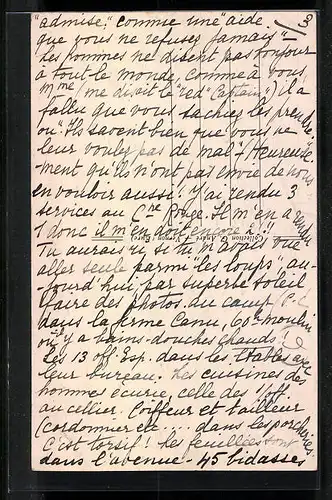 "admise," comme une "aide
que vous ne refusez jamais"
Les hommes ne disent pas toujours
à tout le monde, comme à vous
Mme (me disait le "red" Captain) il a
fallu que vous sachiez les prendre
ou "Ils savent bien que vous ne
leur voulez pas de mal"! Heureuse-
ment qu'ils n'ont pas envie de nous
en vouloir aussi! J'ai rendu 3
services au Cne Rouge. Il m'en a rendu
1 donc il m'en doit encore 2!!
Tu aurais ri si tu m'avais vue
aller seule parmi "les loups", au-
jourd'hui, par superbe soleil
faire des photos du camp
dans la ferme Canu, 60 moulin
où y a bains-douches chauds!
Les 13 off. Esp. dans les étables avec
leur bureau. Les cuisines des
hommes écurie, celle des off.
au cellier. Coiffeur et tailleur
(cordonnier etc.... dans les porcheries.
C'est torsif! les feuillées sont
dans l'avenue - 45 bidasses
3